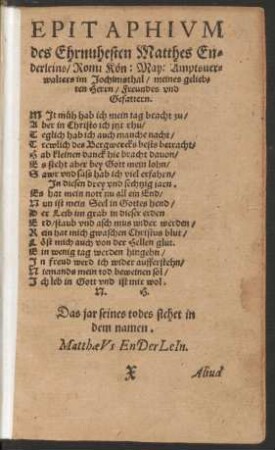 EPITAPHIVM
des Ehrnuhesten Matthes En-
derleins/ Romi Kön: May: Amptouer-
walters im Jochimsthal/ meines gelieb-
ten Heren/ Freundes vnd
Gefattern.
MIt müh hab ich mein tag bracht zu/
Aber in Christo ich itzt rhu/
Teglich hab ich auch manche nacht/
Trewlich des Bergwercks bests betracht/
Hab kleinen danck hie bracht dauon/
Es steht aber bey Gott mein lohn/
Sawr vnd süß hab ich viel erfahen/
In diesen drey vnd sechtzig jarn.
Es hat mein nott nu all ein End/
Nun ist mein Seel in Gottes hend/
Der Leib im grab in dieser erden
Erd/staub vnd asch mus wider werden/
Rein hat mich gwaschen Christus blut/
Löst mich auch von der Hellen glut.
Ein wenig tag werden hingehn/
In freud werd ich wider aufferstehn/
Niemands mein tod beweinen sol/
Ich leb in Gott vnd ist mir wol.
N. H.
Das jar seines todes stehet in
dem namen.
MatthæVs EnDerLeIn.
X Aliud